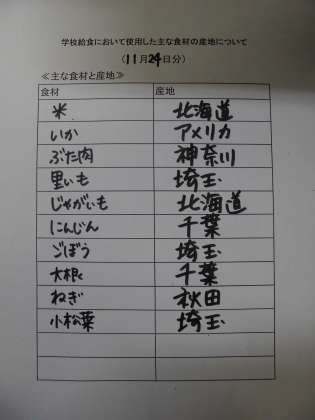 学校給食において使用した主な食材の産地について
(11月24日分)
≪主な食材と産地≫
食材 産地
米 北海道
いか アメリカ
ぶた肉 神奈川
里いも 埼玉
じゃがいも 北海道
にんじん 千葉
ごぼう 埼玉
大根 千葉
ねぎ 秋田
小松菜 埼玉